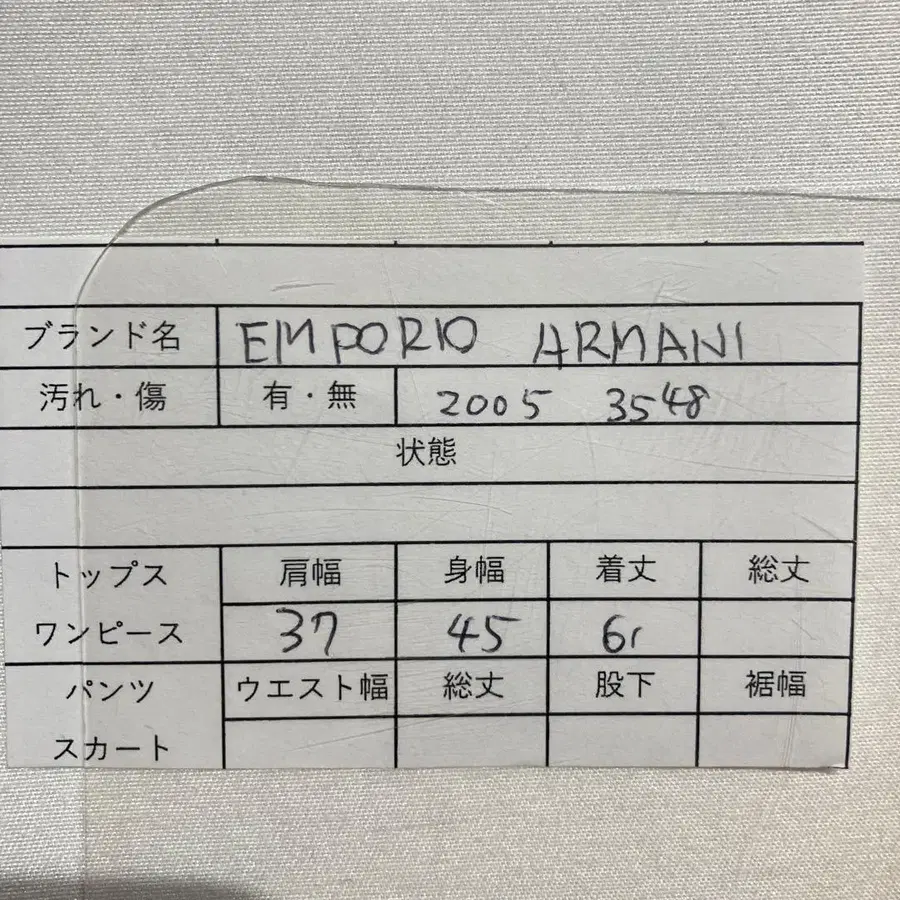 ブランド名 EMPORIO ARMANI
汚れ・傷 有・無 2005 3548
状態
トップス 肩幅 身幅 着丈 総丈
ワンピース 37 45 61
パンツ ウエスト幅 総丈 股下 裾幅
スカート